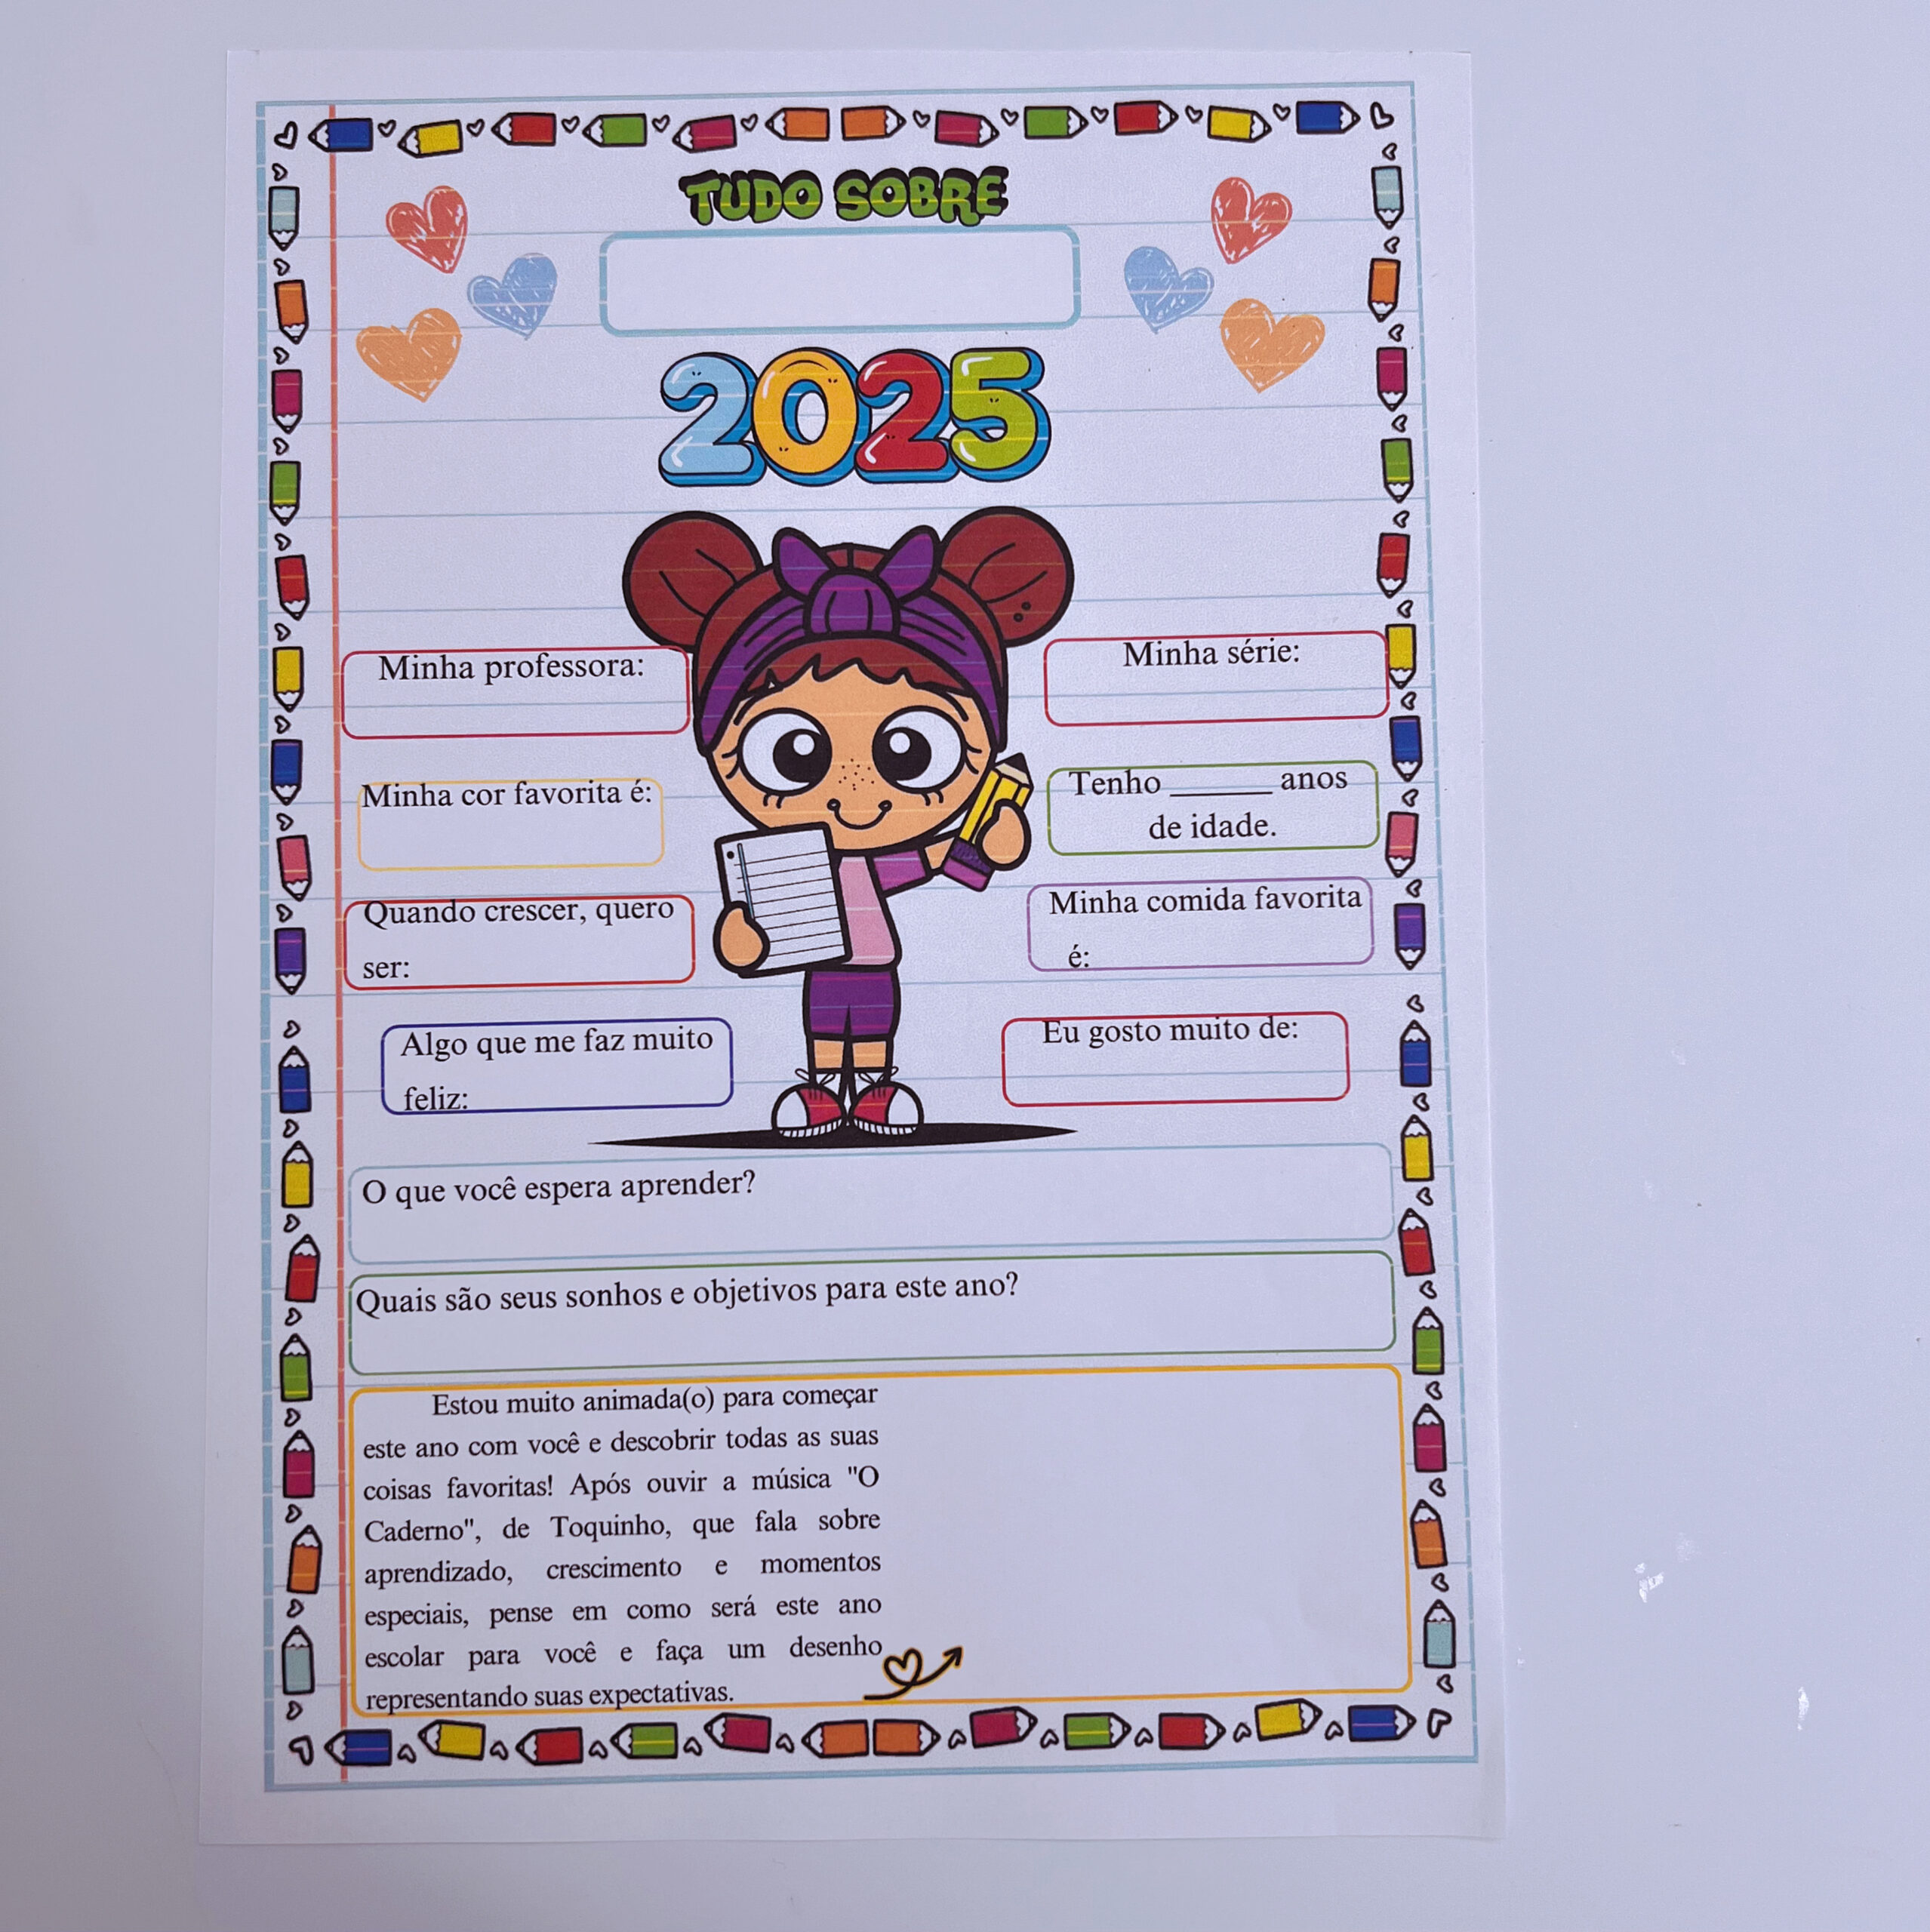 TUDO SOBRE
2025
Minha professora:
Minha série:
Minha cor favorita é:
Tenho ______ anos
de idade.
Quando crescer, quero
ser:
Minha comida favorita
é:
Algo que me faz muito
feliz:
Eu gosto muito de:
O que você espera aprender?
Quais são seus sonhos e objetivos para este ano?
Estou muito animada(o) para começar
este ano com você e descobrir todas as suas
coisas favoritas! Após ouvir a música "O
Caderno", de Toquinho, que fala sobre
aprendizado, crescimento e momentos
especiais, pense em como será este ano
escolar para você e faça um desenho
representando suas expectativas.